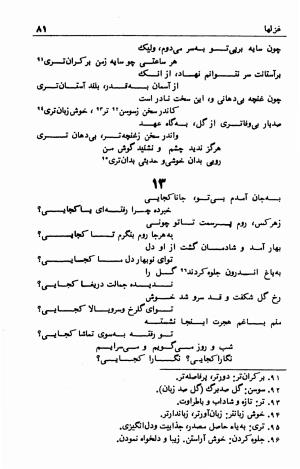 غزلها ۸۱
چون سایه بر پی تو به سر می‌دوم، ولیک
هر ساعتی چو سایه زمن بر کران‌تری۹۱
بر آستانت سر نتوانم نهاد، از انک
از آسمان به قدر، بلند آستان‌تری
چون غنچه بی‌دهانی و، این سخت نادر است
کاندر سخن زسوسن۹۲ تر۹۳، خوش زبان‌تری۹۴
صدبار بی‌وفاتری از گل، به‌گاه عهد
واندر سخن زغنچه‌تر، بی‌دهان تری
هرگز ندید چشم و نشنید گوش من
رویی بدان خوشی و حدیثی بدان تری۹۵
۱۳
به‌جان آمدم بی‌تو، جانا کجایی
خبرده چرا رفته‌ای یا کجایی؟
زهرکس، روم پرست تا تو چونی
به هرجا روم بنگرم تا کجایی؟
بهار آمد و شادمان گشت از او دل
توای نوبهار دل ما کجایی؟
به‌باغ اندرون جلوه کردند۹۶ گل را
ندیده جمالت دریغا کجایی؟
رخ گل شکفت و قد سرو شد خوش
توای گلرخ و سروبالا کجایی؟
منم باغم هجرت اینجا نشسته
تو رفته به‌سوی تماشا کجایی؟
شب و روز می‌گویم و می‌سرایم
نگارا کجایی؟ نگارا کجایی؟
۹۱. برکران‌تر: دورتر، پرفاصله‌تر.
۹۲. سوسن: گل صدبرگ (گل صد زبان).
۹۳. تر: تازه و شاداب و باطراوت.
۹۴. خوش زبانتر: زبان‌آورتر، زباندارتر.
۹۵. تری: به‌یاء حاصل مصدر، جذابیت و دل‌انگیزی.
۹۶. جلوه کردن: خوش آراستن. زیبا و دلخواه نمودن.